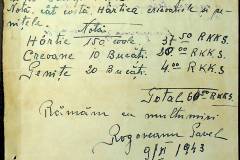 Notă cât costă, Hârtica creioanele și pe-
nițele.
Notă.
Hârtie 150 coale. 37 50 RKKS.
Creoane 10 Bucăți. 28 00 RKKS.
Penițe 20 Bucăți. 4 00 RKKS.
Total RKKS.
Rămâm cu mulțumiri
Rogoveanu Pavel
9/XI 1943